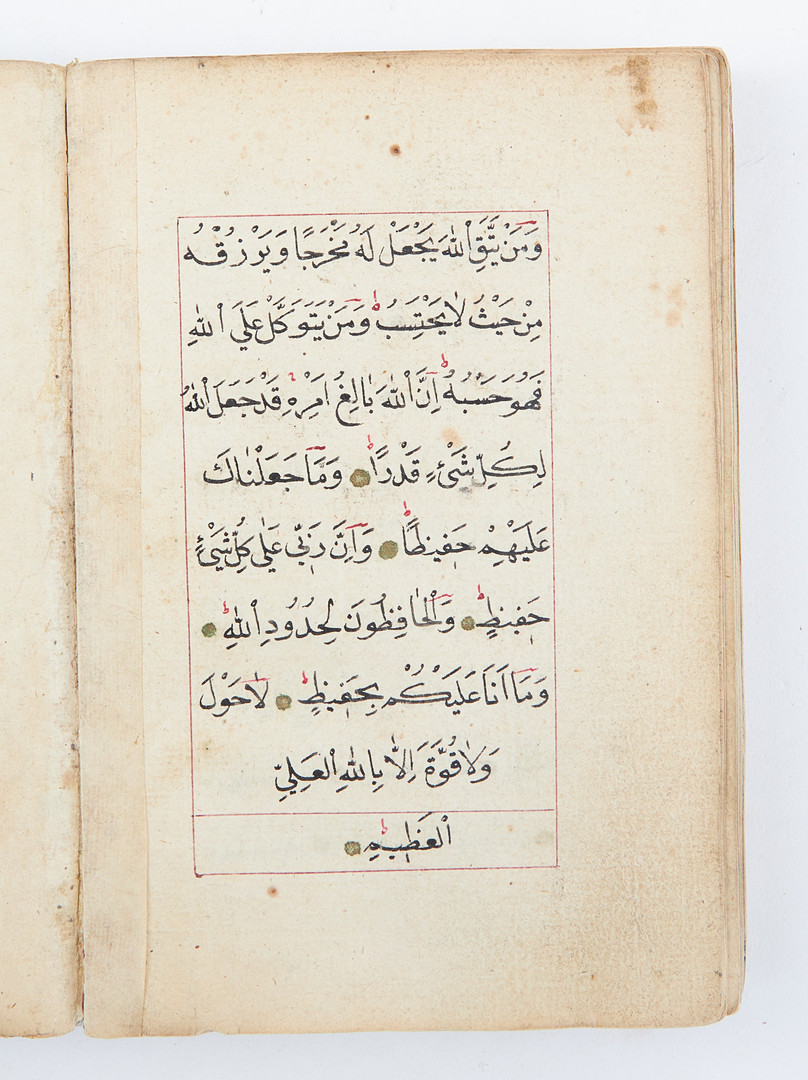 وَمَنْ يَتَّقِ اللّٰهَ يَجْعَلْ لَهُ مَخْرَجًا وَيَرْزُقْهُ
مِنْ حَيْثُ لَا يَحْتَسِبُ ط وَمَنْ يَتَوَكَّلْ عَلَي اللّٰهِ
فَهُوَ حَسْبُهُ ط اِنَّ اللّٰهَ بَالِغُ اَمْرِهِ قَدْ جَعَلَ اللّٰهُ
لِكُلِّ شَيْءٍ قَدْرًا ط وَمَٓا جَعَلْنَاكَ
عَلَيْهِمْ حَفِيظًا ط وَاِنَّ رَبِّي عَلٰي كُلِّ شَيْءٍ
حَفِيظٍ ط وَالْحَافِظُونَ لِحُدُودِ اللّٰهِ ط
وَمَٓا اَنَا عَلَيْكُمْ بِحَفِيظٍ ط لَا حَوْلَ
وَلَا قُوَّةَ اِلَّا بِاللّٰهِ الْعَلِيِّ
الْعَظِيمِ ط